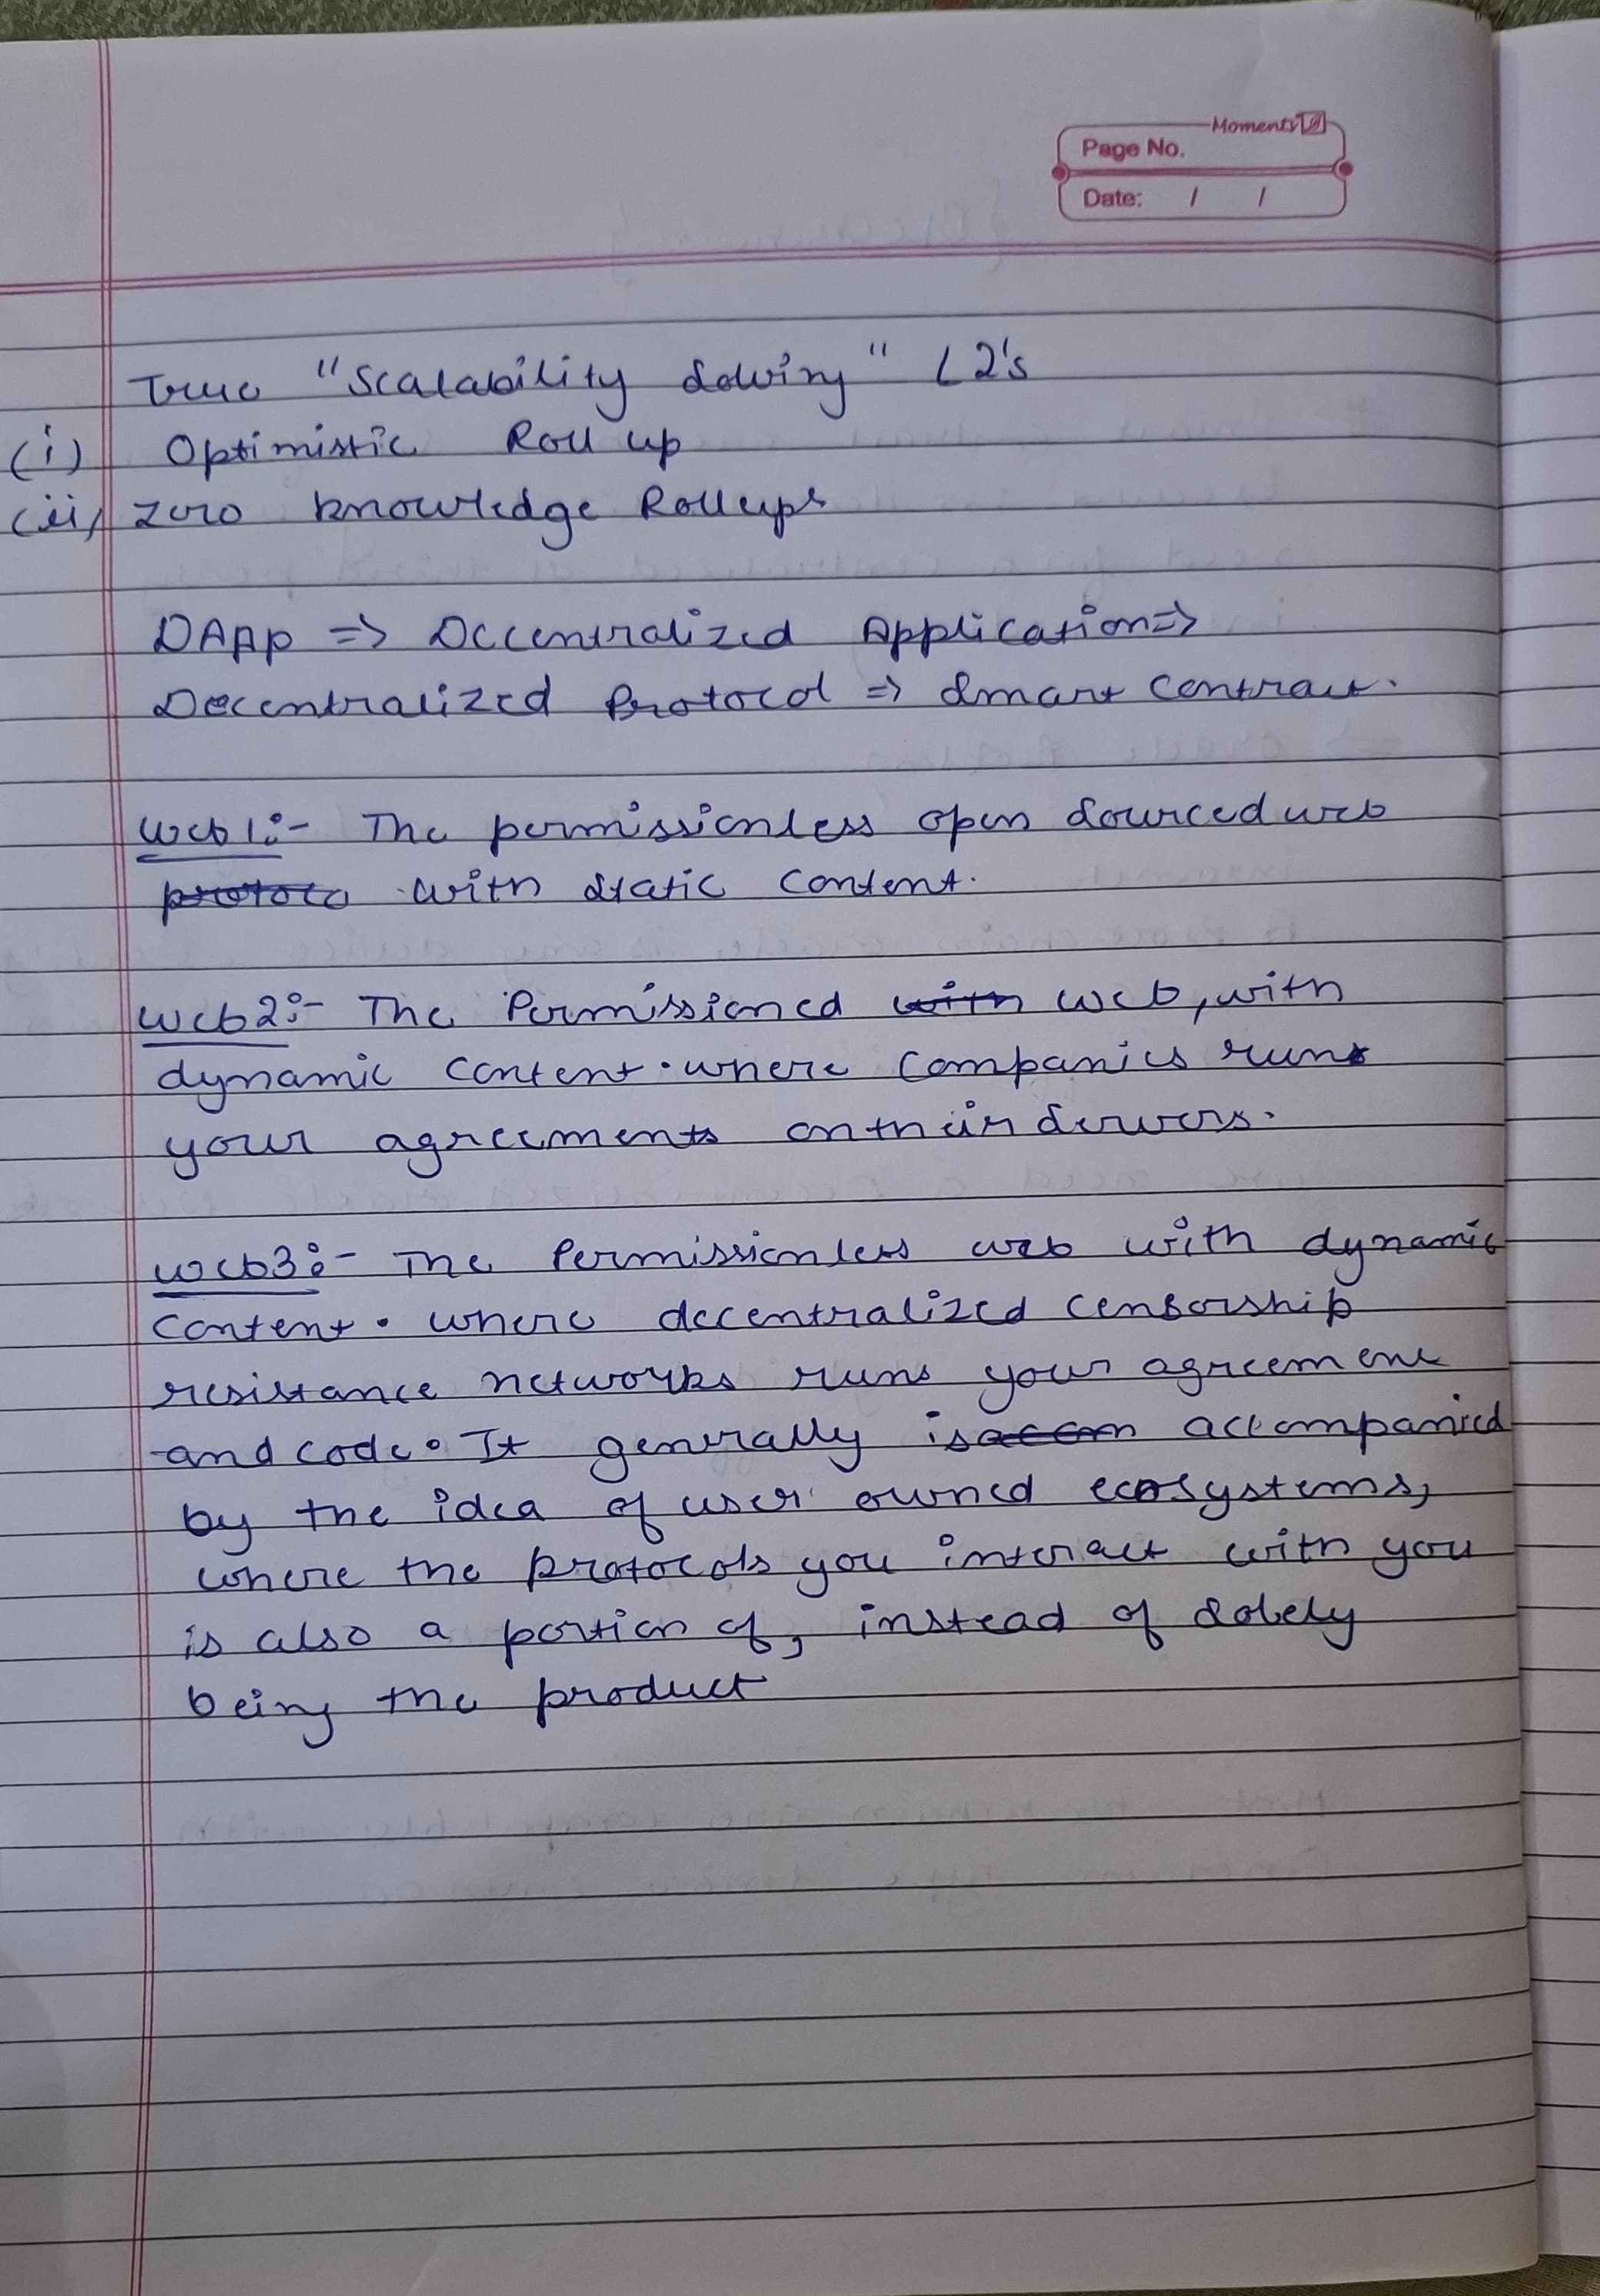 Moments
Page No.
Date: / /
True "Scalability Solving" L2's
(i) Optimistic Roll up
(ii) Zero knowledge Rollups
DApp => Decentralized Application =>
Decentralized Protocol => Smart Contract.
Web1:- The permissionless open sourced web
protoco with static content.
Web2:- The Permissioned with web, with
dynamic content. where companies runs
your agreements on their servers.
Web3:- The Permissionless web with dynamic
content. where decentralized censorship
resistance networks runs your agreement
and code. It generally is accom accompanied
by the idea of user owned ecosystems,
where the protocols you interact with you
is also a portion of, instead of solely
being the product